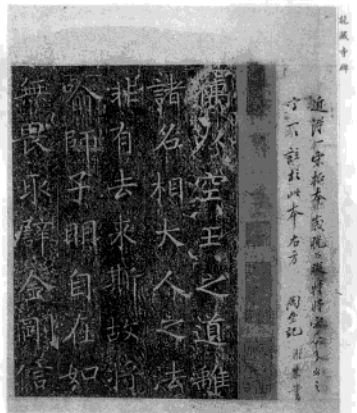 龍藏寺碑
近得一宋拓本
字可註於此本右方 匋齋記
竊以空王之道離
諸名相大人之法
非有去來斯故將
喻師子明自在如
無畏取譬金剛信